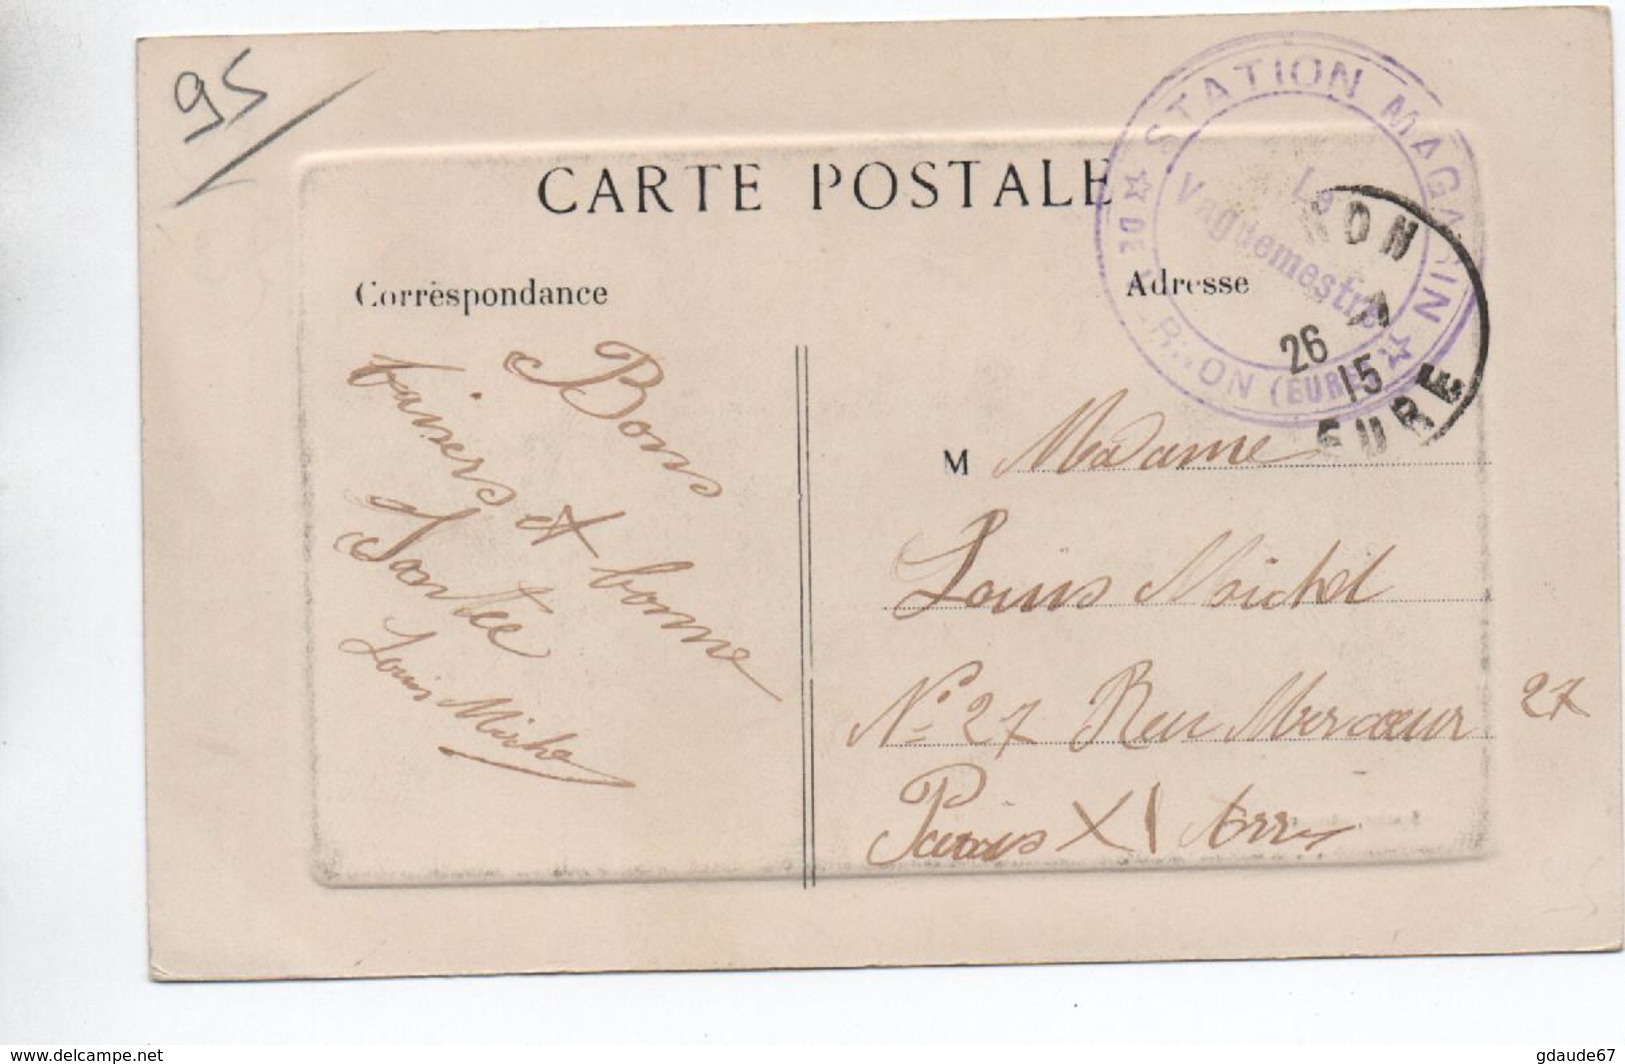 95
CARTE POSTALE
STATION MAGASIN
Le
Vaguemestre
DE VERNON (EURE)
NON
26 7
15
EURE
Corrèspondance
Adresse
Bons
baisers et bonne
Santée
Louis Michel
M Madame
Louis Michel
N° 27 Rue Mercœur 27
Paris XI Arr
www.delcampe.net
gdaude67